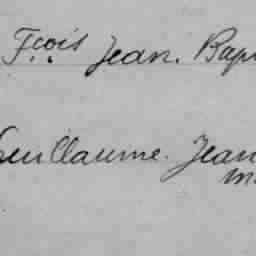 Fçois Jean. Bap
Guillaume. Jean
m.